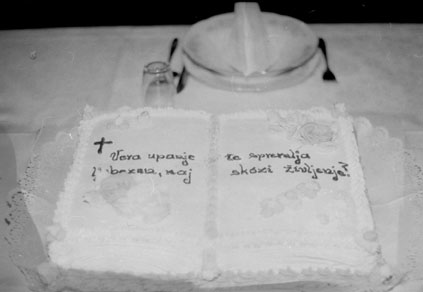 Vera upanje
ljubezen, naj
te spremlja
skozi življenje!